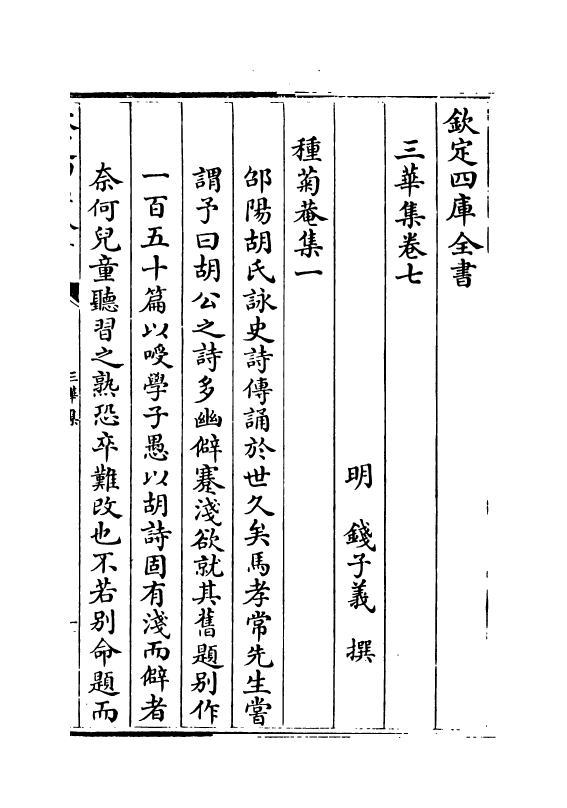 欽定四庫全書
三華集卷七
明 錢子義 撰
種菊菴集一
邵陽胡氏詠史詩傳誦於世久矣馬孝常先生嘗
謂予曰胡公之詩多幽僻蹇淺欲就其舊題别作
一百五十篇以嘤學子愚以胡詩固有淺而僻者
奈何兒童聽習之熟恐卒難改也不若别命題而
三華集
一